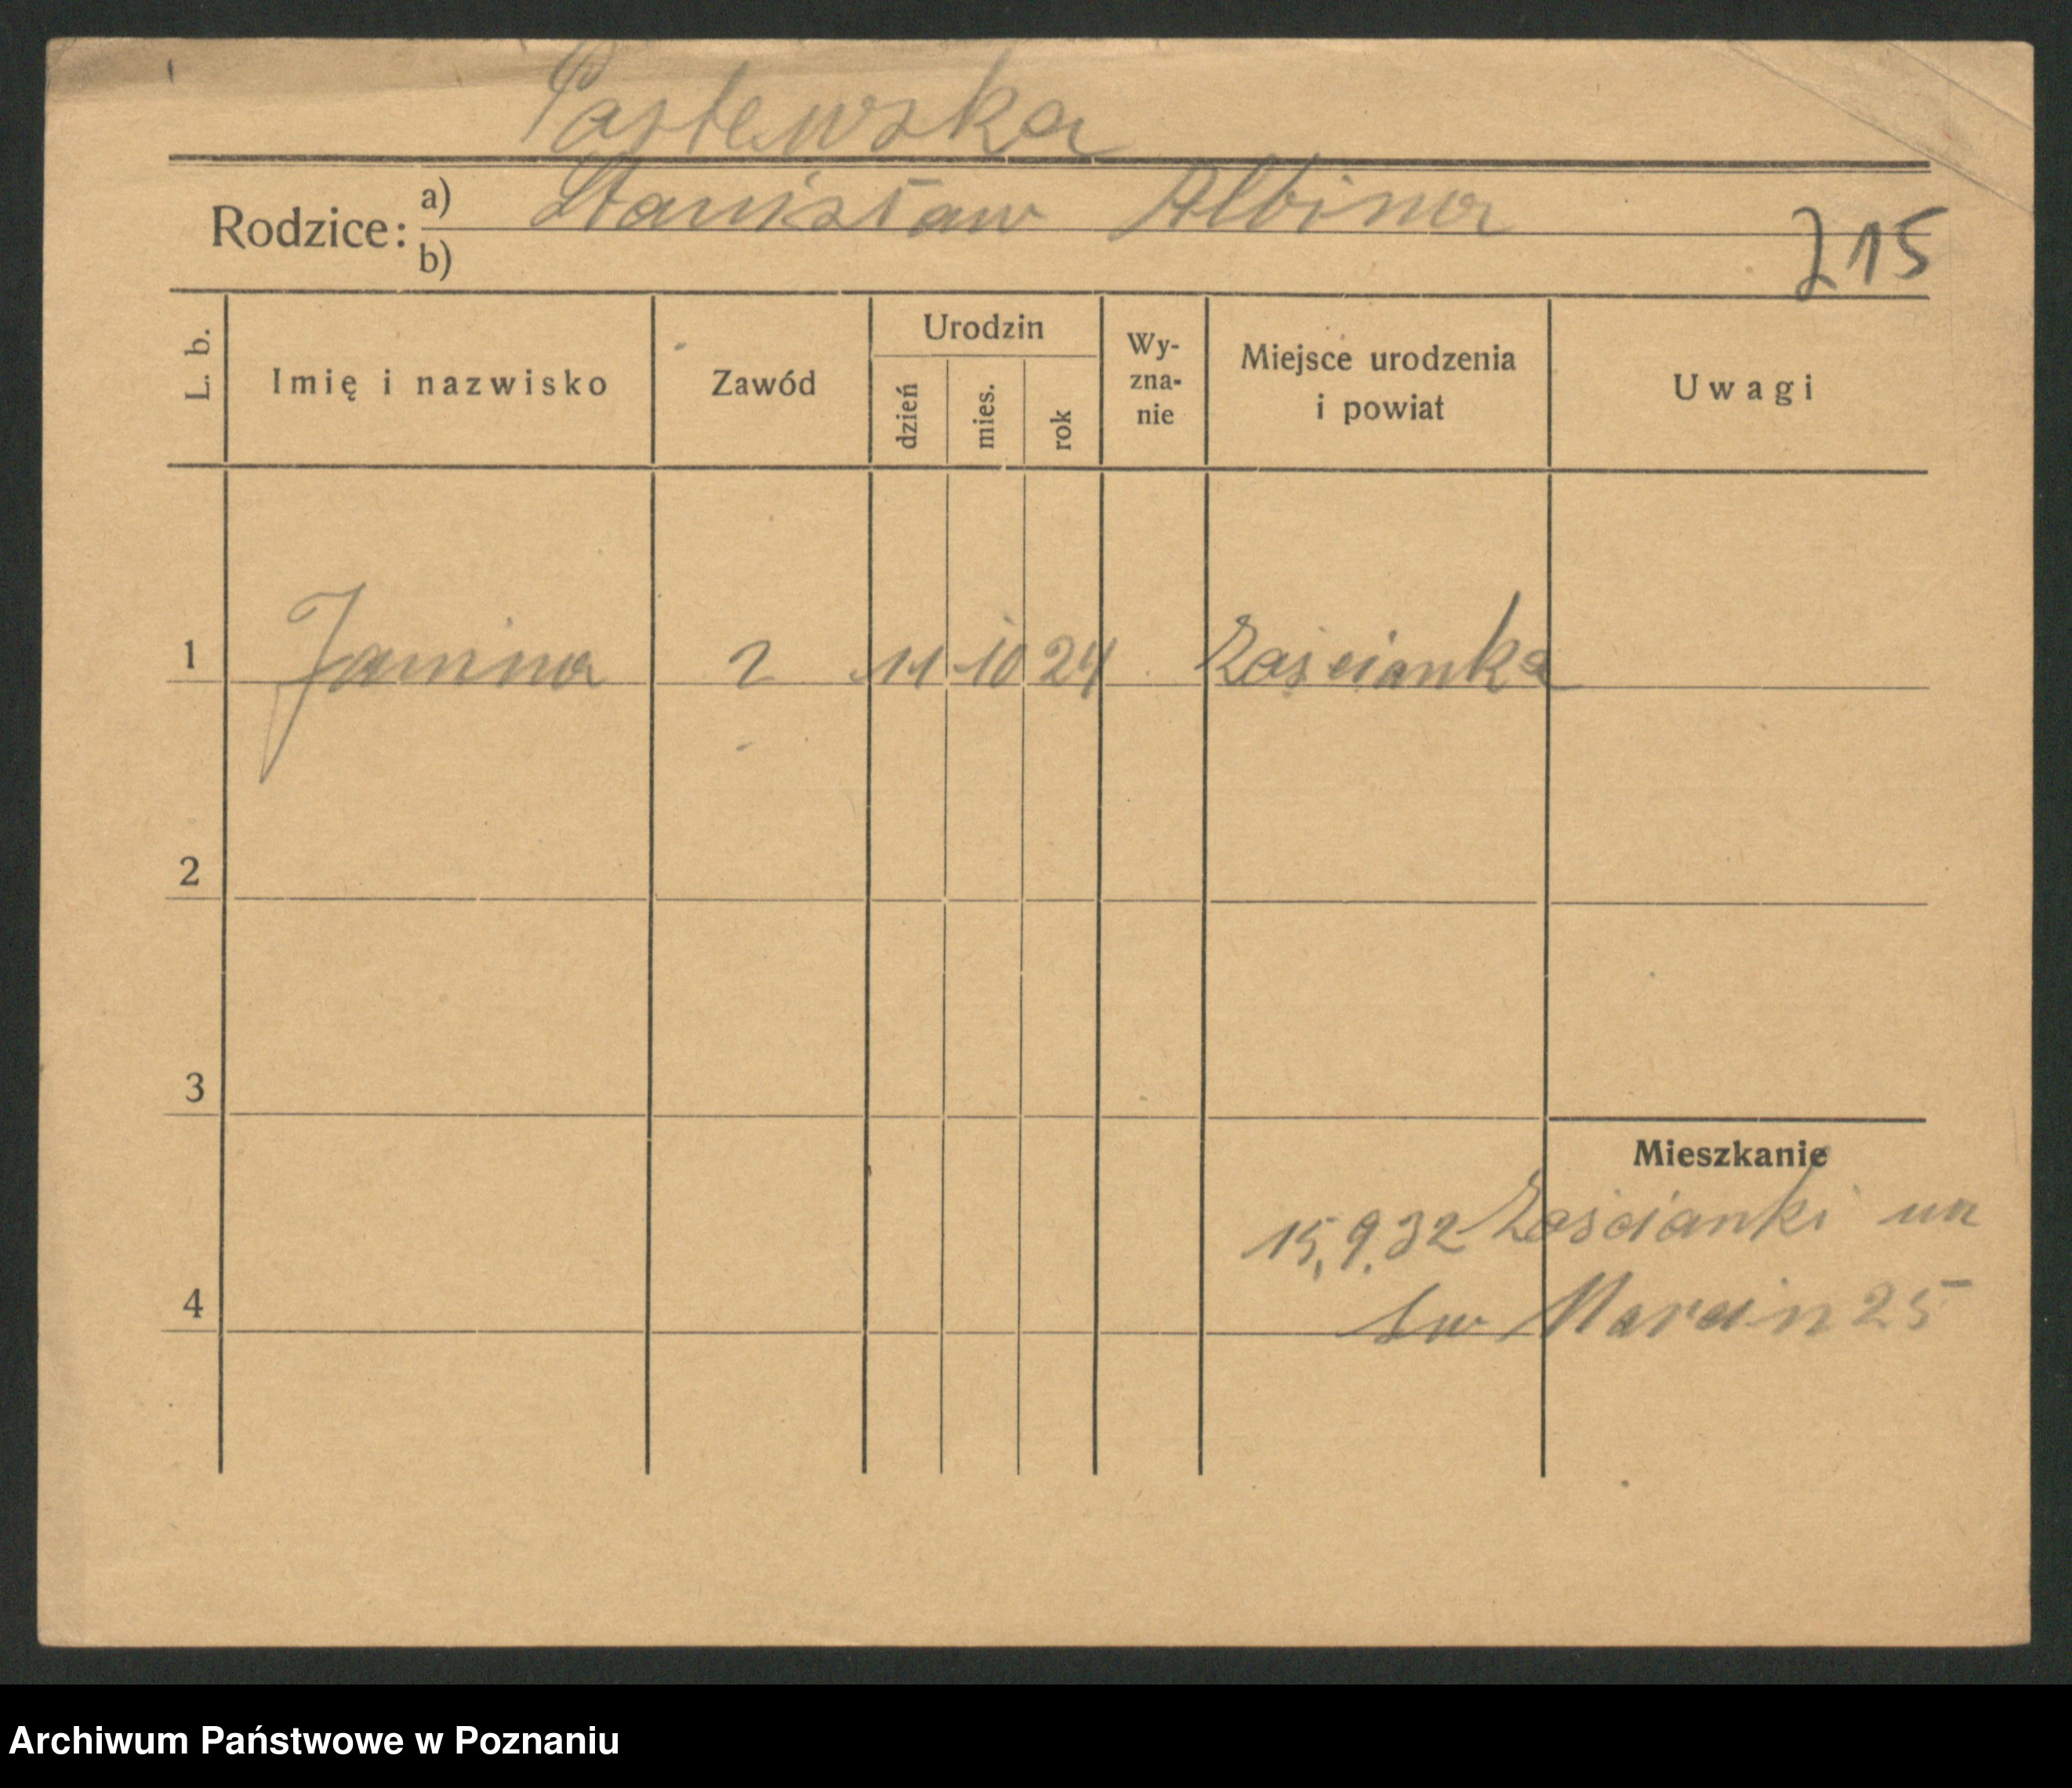 Pastewska
Rodzice: a) Stanisław Albina
b)
215
L. b. Imię i nazwisko Zawód Urodzin dzień mies. rok Wy-zna-nie Miejsce urodzenia i powiat Uwagi
1 Janina 2 11 10 24 Zaścianka
2
3
Mieszkanie
15.9.32 Zaścianki na
4 św Marcin 25
Archiwum Państwowe w Poznaniu